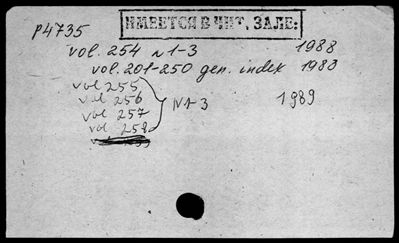 ИМЕЕТСЯ В ЧИТ. ЗАЛЕ:
P4735
vol. 254 N 1-3 1988
vol. 201-250 gen. index 1983
vol 255
vol 256 N 1-3 1989
vol 257
vol 258